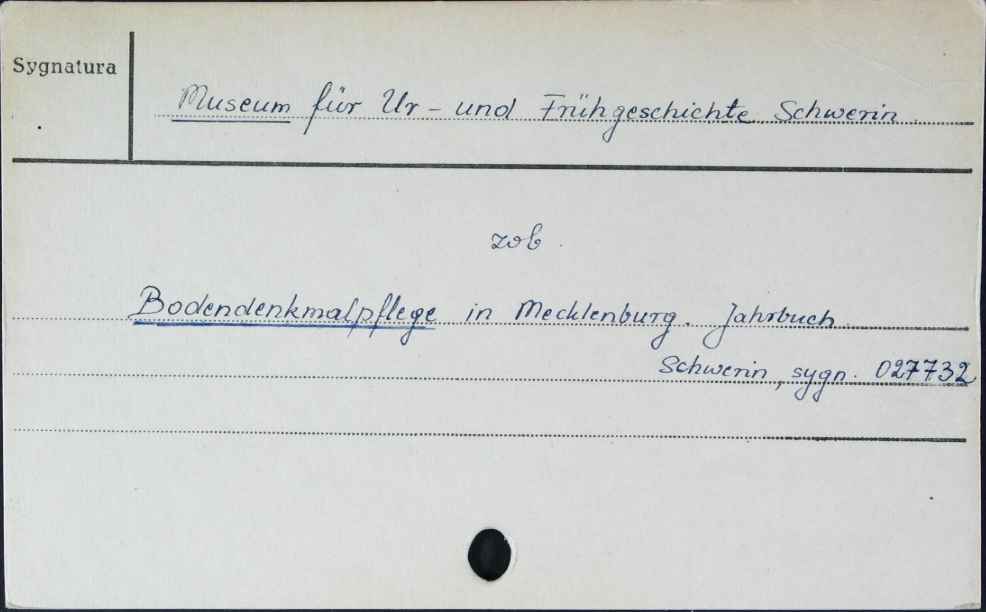 Sygnatura
Museum für Ur - und Frühgeschichte Schwerin
zob.
Bodendenkmalpflege in Mecklenburg. Jahrbuch.
Schwerin, sygn. 027732